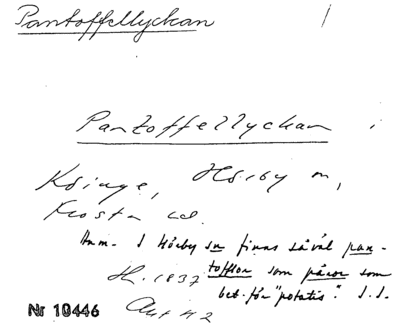 Pantoffellyckan
Pantoffellyckan
Ksinge, Hörby sn,
Frosta hd.
Anm. I Hörby sn finns såväl pan-
tofflor som päror som
H. 1837 bet. för "potatis". S.I.
Akt 42
Nr 10446